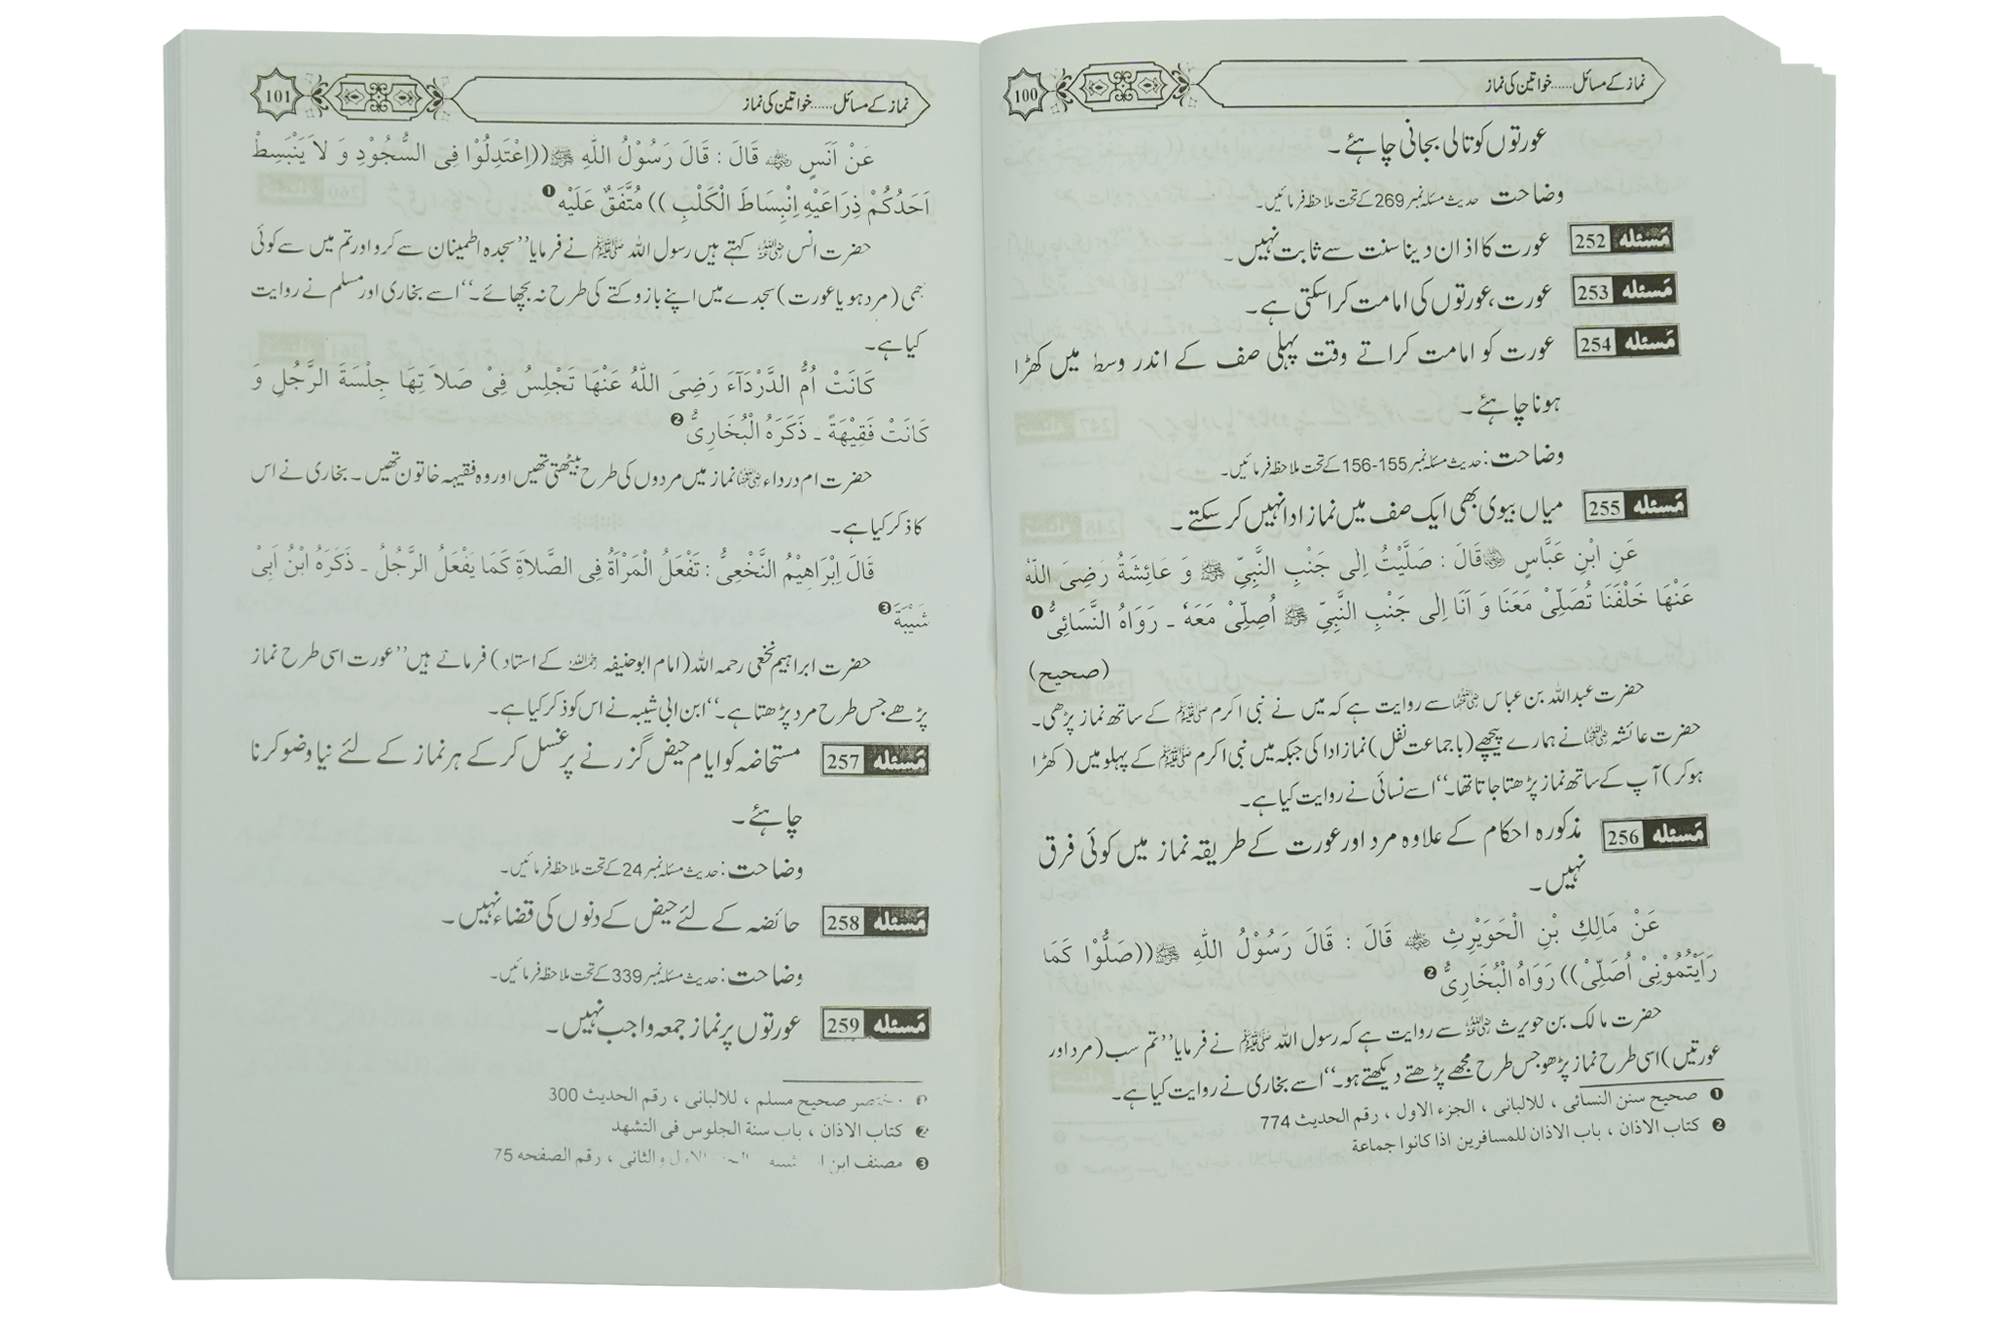 نماز کے مسائل......خواتین کی نماز
100
عورتوں کو تالی بجانی چاہئے۔
وضاحت حدیث مسئلہ نمبر 269 کے تحت ملاحظہ فرمائیں۔
مَسئله 252 عورت کا اذان دینا سنت سے ثابت نہیں۔
مَسئله 253 عورت، عورتوں کی امامت کرا سکتی ہے۔
مَسئله 254 عورت کو امامت کراتے وقت پہلی صف کے اندر وسط میں کھڑا
ہونا چاہئے۔
وضاحت : حدیث مسئلہ نمبر 155-156 کے تحت ملاحظہ فرمائیں۔
مَسئله 255 میاں بیوی بھی ایک صف میں نماز ادا نہیں کر سکتے۔
عَنِ ابْنِ عَبَّاسٍ ﷜ قَالَ : صَلَّيْتُ اِلٰى جَنْبِ النَّبِيِّ ﷺ وَ عَائِشَةُ رَضِىَ اللّٰهُ
عَنْهَا خَلْفَنَا تُصَلِّىْ مَعَنَا وَ اَنَا اِلٰى جَنْبِ النَّبِيِّ ﷺ اُصَلِّىْ مَعَهٗ ـ رَوَاهُ النَّسَائِىُّ ❶
(صحيح)
حضرت عبداللہ بن عباس رضی اللہ عنہما سے روایت ہے کہ میں نے نبی اکرم ﷺ کے ساتھ نماز پڑھی۔
حضرت عائشہ رضی اللہ عنہا نے ہمارے پیچھے (باجماعت نفل) نماز ادا کی جبکہ میں نبی اکرم ﷺ کے پہلو میں (کھڑا
ہو کر) آپ کے ساتھ نماز پڑھتا جاتا تھا۔‘‘ اسے نسائی نے روایت کیا ہے۔
مَسئله 256 مذکورہ احکام کے علاوہ مرد اور عورت کے طریقہ نماز میں کوئی فرق
نہیں۔
عَنْ مَالِكِ بْنِ الْحَوَيْرِثِ ﷜ قَالَ : قَالَ رَسُوْلُ اللّٰهِ ﷺ ((صَلُّوْا كَمَا
رَأَيْتُمُوْنِىْ اُصَلِّىْ)) رَوَاهُ الْبُخَارِىُّ ❷
حضرت مالک بن حویرث رضی اللہ عنہ سے روایت ہے کہ رسول اللہ ﷺ نے فرمایا ’’تم سب (مرد اور
عورتیں) اسی طرح نماز پڑھو جس طرح مجھے پڑھتے دیکھتے ہو۔‘‘ اسے بخاری نے روایت کیا ہے۔
❶ صحيح سنن النسائى ، للالبانى ، الجزء الاول ، رقم الحديث 774
❷ كتاب الاذان ، باب الاذان للمسافرين اذا كانوا جماعة
نماز کے مسائل......خواتین کی نماز
101
عَنْ اَنَسٍ ﷜ قَالَ : قَالَ رَسُوْلُ اللّٰهِ ﷺ ((اِعْتَدِلُوْا فِى السُّجُوْدِ وَ لاَ يَنْبَسِطْ
اَحَدُكُمْ ذِرَاعَيْهِ اِنْبِسَاطَ الْكَلْبِ )) مُتَّفَقٌ عَلَيْهِ ❶
حضرت انس رضی اللہ عنہ کہتے ہیں رسول اللہ ﷺ نے فرمایا ’’سجدہ اطمینان سے کرو اور تم میں سے کوئی
بھی (مرد ہو یا عورت) سجدے میں اپنے بازو کتے کی طرح نہ بچھائے۔‘‘ اسے بخاری اور مسلم نے روایت
کیا ہے۔
كَانَتْ اُمُّ الدَّرْدَآءَ رَضِىَ اللّٰهُ عَنْهَا تَجْلِسُ فِىْ صَلاَ تِهَا جِلْسَةَ الرَّجُلِ وَ
كَانَتْ فَقِيْهَةً ـ ذَكَرَهُ الْبُخَارِىُّ ❷
حضرت ام درداء رضی اللہ عنہا نماز میں مردوں کی طرح بیٹھتی تھیں اور وہ فقیہہ خاتون تھیں۔ بخاری نے اس
کا ذکر کیا ہے۔
قَالَ اِبْرَاهِيْمُ النَّخْعِىُّ : تَفْعَلُ الْمَرْاَةُ فِى الصَّلاَةِ كَمَا يَفْعَلُ الرَّجُلُ ـ ذَكَرَهُ ابْنُ اَبِىْ
شَيْبَةَ ❸
حضرت ابراہیم نخعی رحمہ اللہ (امام ابو حنیفہ رحمہ اللہ کے استاد) فرماتے ہیں ’’عورت اسی طرح نماز
پڑھے جس طرح مرد پڑھتا ہے۔‘‘ ابن ابی شیبہ نے اس کو ذکر کیا ہے۔
مَسئله 257 مستحاضہ کو ایام حیض گزرنے پر غسل کر کے ہر نماز کے لئے نیا وضو کرنا
چاہئے۔
وضاحت : حدیث مسئلہ نمبر 24 کے تحت ملاحظہ فرمائیں۔
مَسئله 258 حائضہ کے لئے حیض کے دنوں کی قضاء نہیں۔
وضاحت : حدیث مسئلہ نمبر 339 کے تحت ملاحظہ فرمائیں۔
مَسئله 259 عورتوں پر نماز جمعہ واجب نہیں۔
❶ مختصر صحيح مسلم ، للالبانى ، رقم الحديث 300
❷ كتاب الاذان ، باب سنة الجلوس فى التشهد
❸ مصنف ابن الاول والثانى ، رقم الصفحه 75